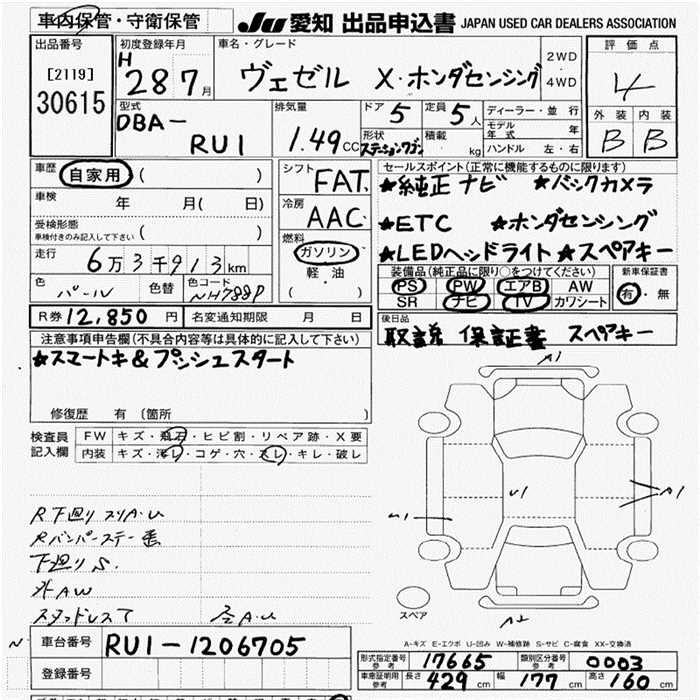 車内保管・守衛保管
JU 愛知 出品申込書 JAPAN USED CAR DEALERS ASSOCIATION
出品番号
[2119]
30615
初度登録年月
H 28 7月
車名・グレード
ヴェゼル X・ホンダセンシング
2WD
4WD
評価点
4
外装 内装
B B
型式
DBA-
RU1
排気量
1.49cc
ドア 5
定員 5人
形状
ステーションワゴン
積載 kg
ディーラー・並行
モデル年式 年
ハンドル 左・右
車歴 自家用 ( )
車検 年 月( 日)
受検形態
車検付きのみ記入して下さい ( )
走行 6万3千913km
色 パール 色替 色コード NH788P
シフト FAT
冷房 AAC
燃料
ガソリン
軽・油
( )
セールスポイント(正常に機能するものに限ります)
★純正ナビ ★バックカメラ
★ETC ★ホンダセンシング
★LEDヘッドライト ★スペアキー
装備品(純正品に限り○をつけてください)
PS PW エアB AW
SR ナビ TV カワシート
新車保証書
有・無
R券 12,850円 名変通知期限 月 日
後日品
取説 保証書 スペアキー
注意事項申告欄(不具合内容等は具体的に記入して下さい)
★スマートキー&プッシュスタート
修復歴 有(箇所 )
検査員記入欄
FW キズ・飛石・ヒビ割・リペア跡・X要
内装 キズ・汚レ・コゲ・穴・スレ・キレ・破レ
A1
U1
A1
R下廻りスリA・U
Rバンパーステー
下廻りS
外AW
スタッドレス
A・U
スペア
A2
A-キズ E-エクボ U-凹み W-補修跡 S-サビ C-腐食 XX-交換済
車台番号 RU1-1206705
登録番号
形式指定番号 参考 17665 類別区分番号 参考 0003
車庫証明用 参考 長さ 429cm 幅 177cm 高さ 160cm